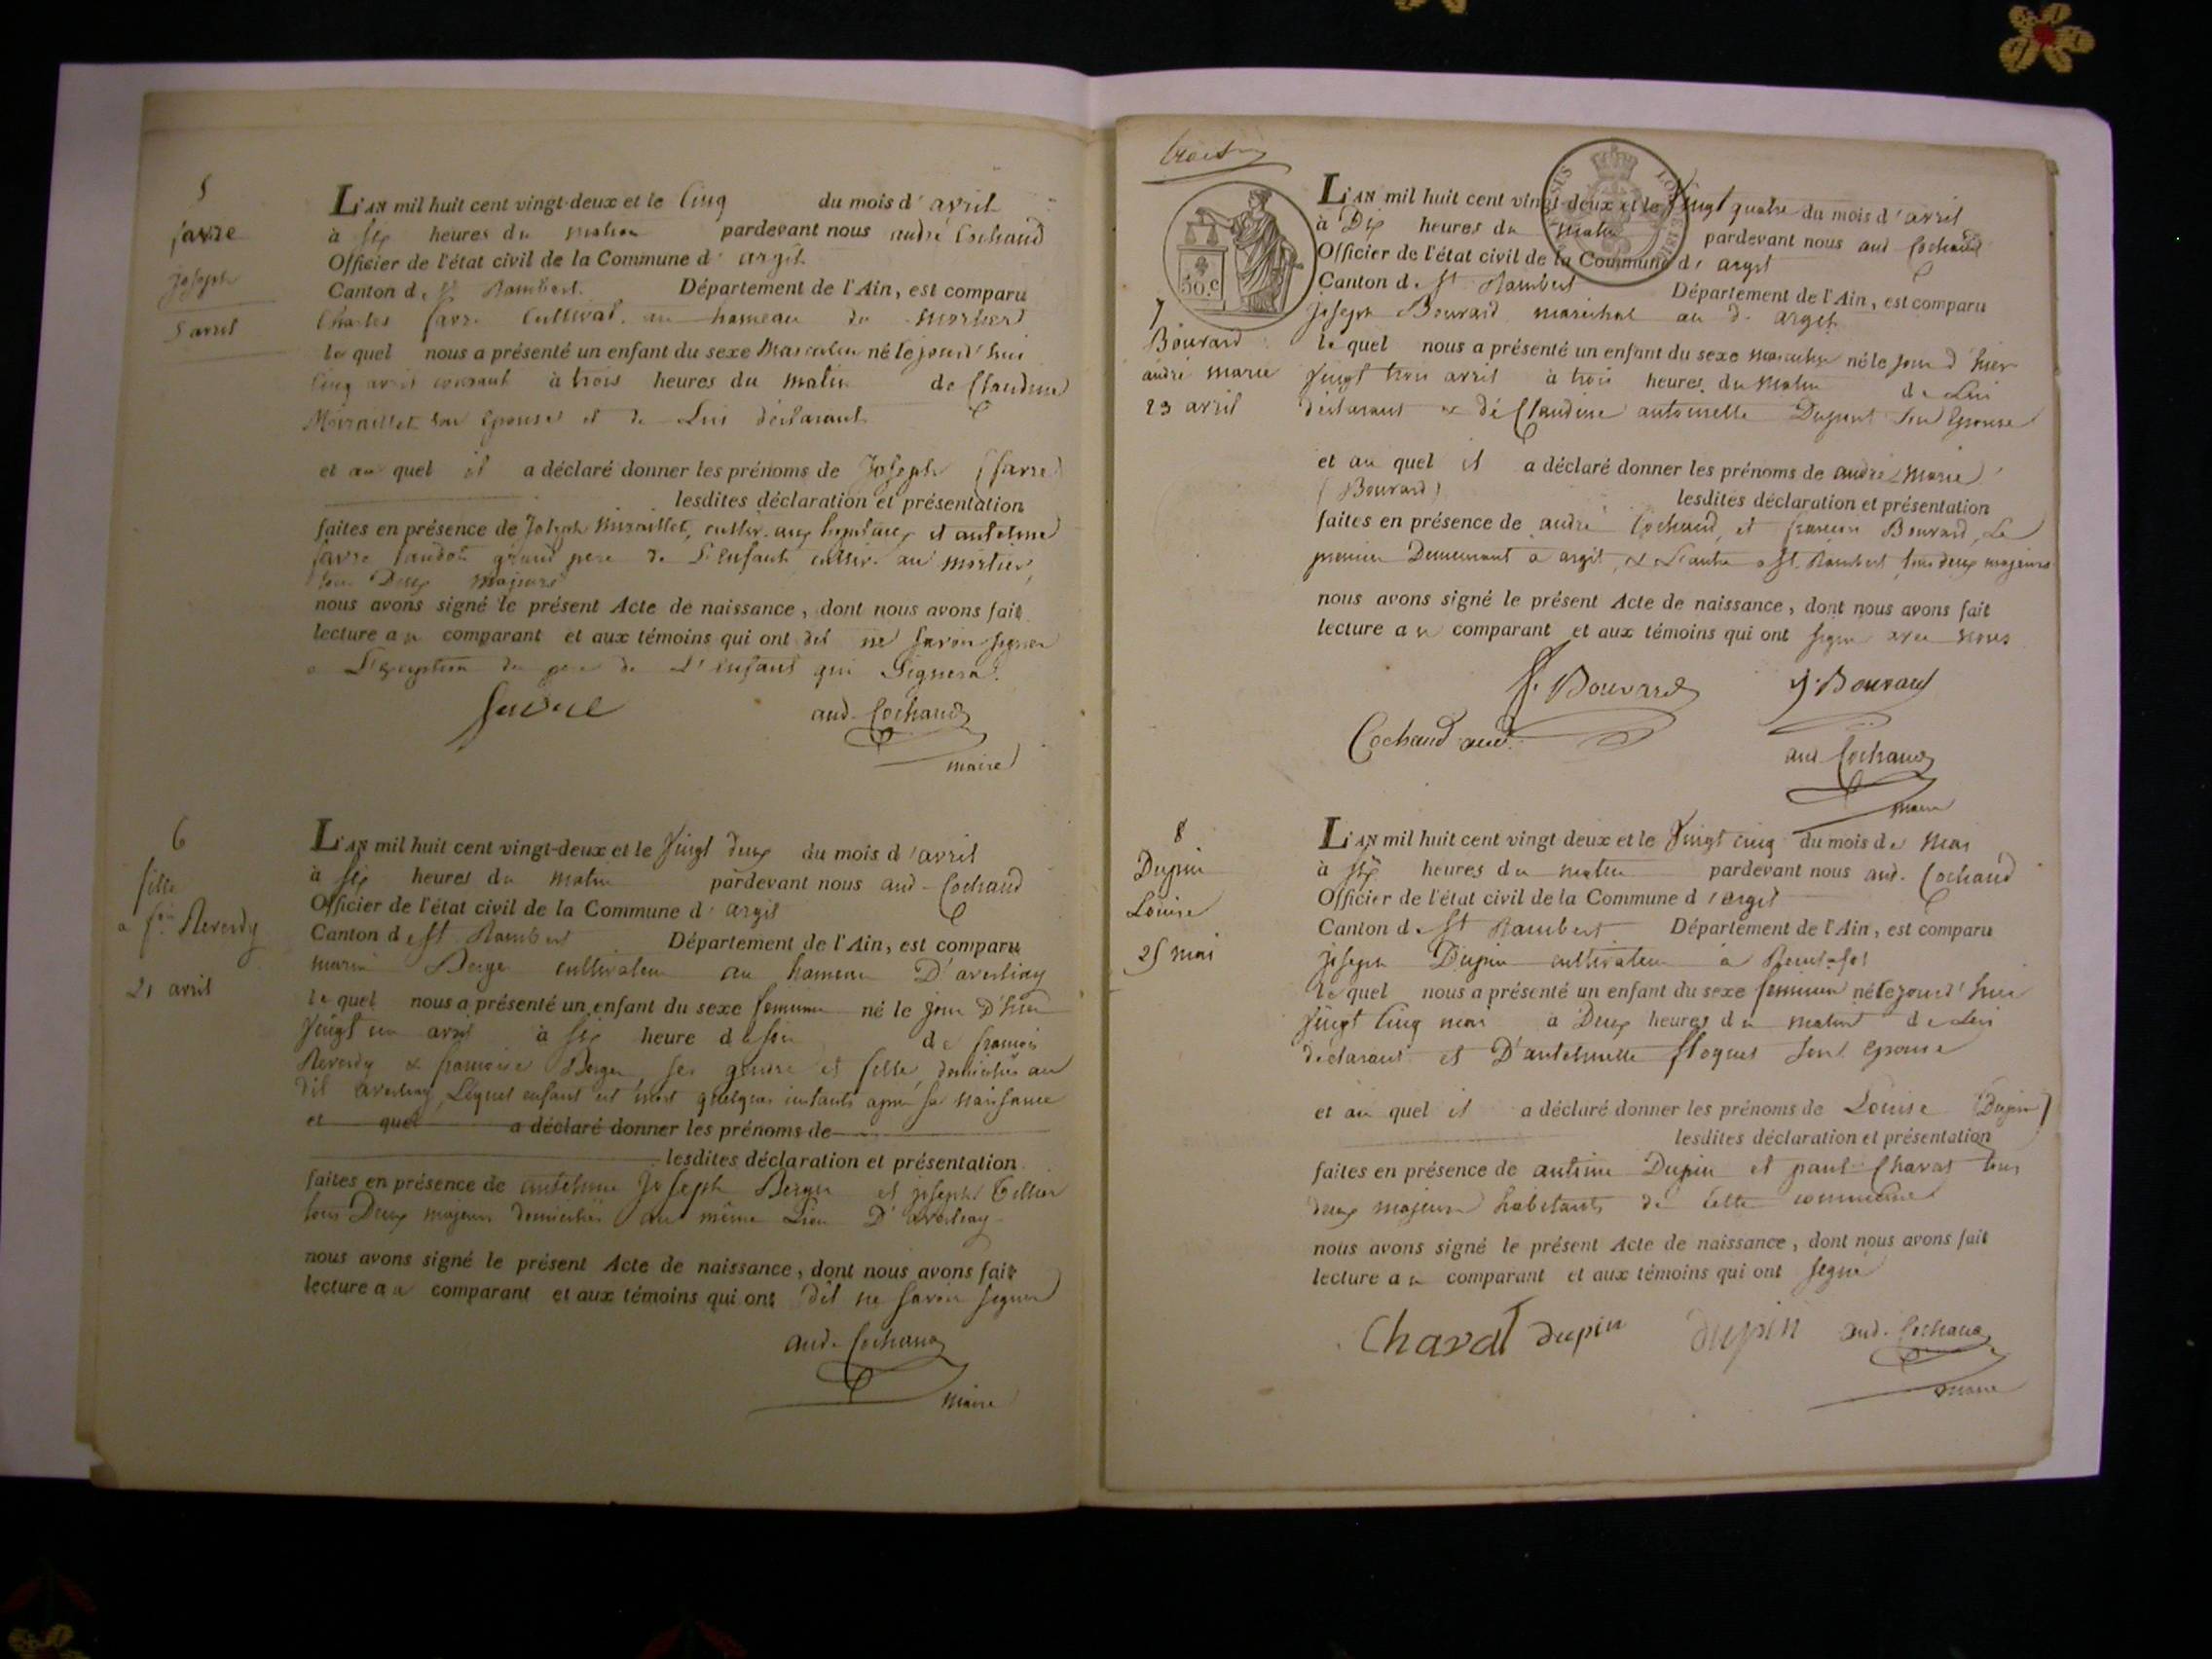 5
favre
Joseph
5 avril
L'AN mil huit cent vingt-deux et le Cinq du mois d'avril
à six heures du matin pardevant nous andré Cochaud
Officier de l'état civil de la Commune d'argit
Canton de St Rambert. Département de l'Ain, est comparu
Charles favre Cultivat. au hameau du mortier
le quel nous a présenté un enfant du sexe Masculin né le jourd'hui
Cinq avril courant à trois heures du matin de Claudine
Miraillet son Epouse et de Lui déclarant
et au quel il a déclaré donner les prénoms de Joseph (favre)
lesdites déclaration et présentation
faites en présence de Joseph Miraillet, cultiv. aux et antelme
favre grand pere de L'Enfant cultiv. au mortier
tous Deux majeurs
nous avons signé le présent Acte de naissance, dont nous avons fait
lecture au comparant et aux témoins qui ont dit ne savoir signer
a L'exception du pere de L'enfant qui Signera.
favre
and. Cochaud
maire
6
fille
a f.ois Reverdy
21 avril
L'AN mil huit cent vingt-deux et le Vingt deux du mois d'avril
à six heures du matin pardevant nous and. Cochaud
Officier de l'état civil de la Commune d'argit
Canton de St Rambert Département de l'Ain, est comparu
marin Berger cultivateur au hameau D'averliay
le quel nous a présenté un enfant du sexe feminin né le jour D'hier
Vingt un avril à six heure du soir de francois
Reverdy & francoise Berger ses gendre et fille, domiciliés au
dit averliay, Lequel enfant est mort quelques instants après sa naissance
et quel a déclaré donner les prénoms de
lesdites déclaration et présentation
faites en présence de antelme Joseph Berger et joseph Tellier
tous Deux majeurs domiciliés au même Lieu D'averliay
nous avons signé le présent Acte de naissance, dont nous avons fait
lecture au comparant et aux témoins qui ont dit ne savoir signer
and. Cochaud
maire
50.c
7
Bouvard
andré marie
23 avril
L'AN mil huit cent vingt-deux et le Vingt quatre du mois d'avril
à Dix heures du matin pardevant nous and Cochaud
Officier de l'état civil de la Commune d'argit
Canton de St Rambert Département de l'Ain, est comparu
Joseph Bouvard maréchal au d. argit
le quel nous a présenté un enfant du sexe masculin né le jour d'hier
Vingt trois avril à trois heures du matin de Lui
déclarant & de Claudine antoinette Dupont son Epouse
et au quel il a déclaré donner les prénoms de andré marie
(Bouvard) lesdites déclaration et présentation
faites en présence de andré Cochaud, et francois Bouvard, Le
premier Demeurant à argit, & L'autre a St. Rambert tous deux majeurs
nous avons signé le présent Acte de naissance, dont nous avons fait
lecture au comparant et aux témoins qui ont signé avec nous
f. Bouvard J. Bouvard
Cochaud and.
and Cochaud
maire
8
Dupin
Louise
25 mai
L'AN mil huit cent vingt-deux et le Vingt cinq du mois de mai
à six heures du matin pardevant nous and. Cochaud
Officier de l'état civil de la Commune d'argit
Canton de St Rambert Département de l'Ain, est comparu
joseph Dupin cultivateur à
le quel nous a présenté un enfant du sexe feminin né le jourd'hui
Vingt Cinq mai à Deux heures du matin de Lui
déclarant et D'antelmette floquet son epouse
et au quel il a déclaré donner les prénoms de Louise (Dupin)
lesdites déclaration et présentation
faites en présence de antime Dupin et paul Charat tous
deux majeurs habitants de cette commune
nous avons signé le présent Acte de naissance, dont nous avons fait
lecture au comparant et aux témoins qui ont signé
Charat dupin dupin and. Cochaud
maire